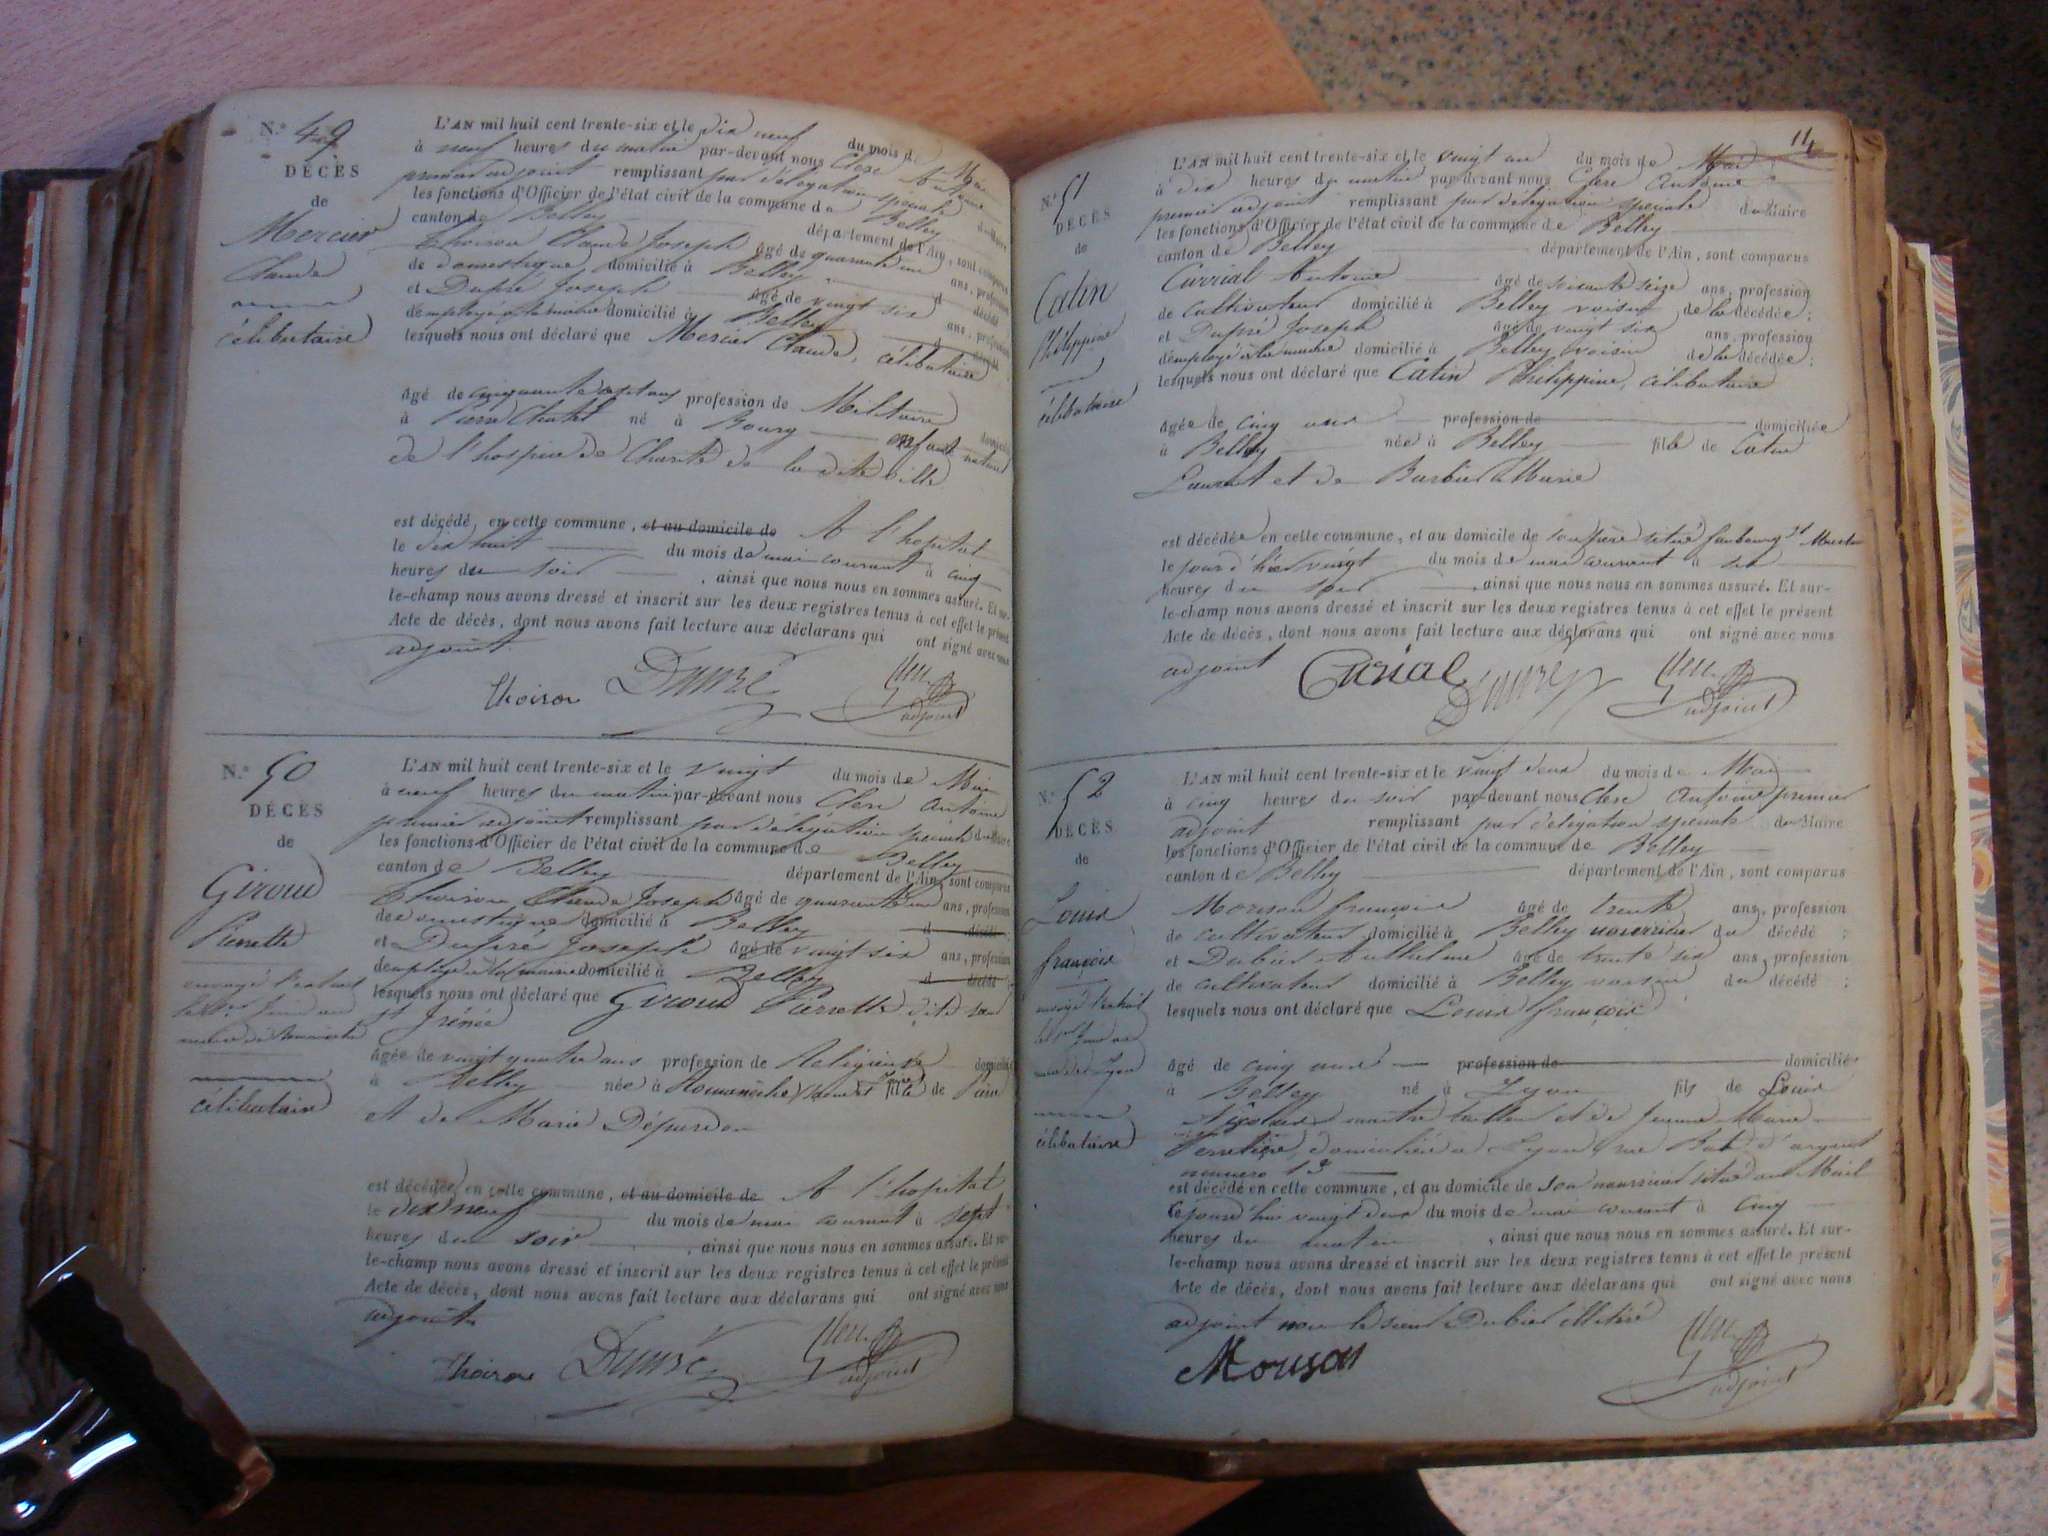 N.° 49
DÉCÈS
de
Mercier
Claude
célibataire
L'AN mil huit cent trente-six et le dix neuf du mois de Mai
à neuf heures du matin par-devant nous Clerc Antoine
premier adjoint remplissant par délégation speciale du Maire
les fonctions d'Officier de l'état civil de la commune de Belley
canton de Belley département de l'Ain, sont comparus
Thoison Claude Joseph âgé de quarante un ans, profession
de domestique domicilié à Belley d décédé
et Dupré Joseph âgé de vingt six ans, profession
d'employé à la mairie domicilié à Belley d décédé
lesquels nous ont déclaré que Mercier Claude, célibataire
âgé de cinquante sept ans profession de Militaire domicilié
à Pierre Chatel né à Bourg enfant naturel
de l'hospice de Charité de la dite ville
est décédé, en cette commune, et au domicile de A l'hopital
le dix huit du mois de mai courant à cinq
heures du soir, ainsi que nous nous en sommes assuré. Et sur-
le-champ nous avons dressé et inscrit sur les deux registres tenus à cet effet le présent
Acte de décès, dont nous avons fait lecture aux déclarans qui ont signé avec nous
adjoint.
Thoison Dupré Clerc adjoint
N.° 50
DÉCÈS
de
Giroud
Pierrette
envoyé l'extrait
célibataire
L'AN mil huit cent trente-six et le vingt du mois de Mai
à neuf heures du matin par-devant nous Clerc Antoine
premier adjoint remplissant par délégation speciale du Maire
les fonctions d'Officier de l'état civil de la commune de Belley
canton de Belley département de l'Ain, sont comparus
Thoison Claude Joseph âgé de quarante un ans, profession
de domestique domicilié à Belley d décédé
et Dupré Joseph âgé de vingt six ans, profession
d'employé à la mairie domicilié à Belley d décédé
lesquels nous ont déclaré que Giroud Pierrette dite sœur
st Irénée
âgée de vingt quatre ans profession de Religieuse domiciliée
à Belley née à Romanèche fille de
et de Marie Dépardon
est décédée, en cette commune, et au domicile de A l'hopital
le dix neuf du mois de mai courant à sept
heures du soir, ainsi que nous nous en sommes assuré. Et sur-
le-champ nous avons dressé et inscrit sur les deux registres tenus à cet effet le présent
Acte de décès, dont nous avons fait lecture aux déclarans qui ont signé avec nous
adjoint
Thoison Dupré Clerc adjoint
N.° 51
DÉCÈS
de
Catin
Philippine
célibataire
L'AN mil huit cent trente-six et le vingt un du mois de Mai
à dix heures du matin par-devant nous Clerc Antoine
premier adjoint remplissant par délégation speciale du Maire
les fonctions d'Officier de l'état civil de la commune de Belley
canton de Belley département de l'Ain, sont comparus
Curial Antoine âgé de soixante seize ans, profession
de cultivateur domicilié à Belley voisin de la décédée;
et Dupré Joseph âgé de vingt six ans, profession
d'employé à la mairie domicilié à Belley voisin de la décédée;
lesquels nous ont déclaré que Catin Philippine, célibataire
âgée de cinq ans profession de domiciliée
à Belley née à Belley fille de Catin
Laurent et de Barbier Marie
est décédée en cette commune, et au domicile de son père situé faubourg st Martin
le jour d'hier vingt du mois de mai courant à six
heures du soir, ainsi que nous nous en sommes assuré. Et sur-
le-champ nous avons dressé et inscrit sur les deux registres tenus à cet effet le présent
Acte de décès, dont nous avons fait lecture aux déclarans qui ont signé avec nous
adjoint
Curial Dupré Clerc adjoint
N.° 52
DÉCÈS
de
Louis
françois
envoyé l'extrait
célibataire
L'AN mil huit cent trente-six et le vingt deux du mois de Mai
à cinq heures du soir par-devant nous Clerc Antoine premier
adjoint remplissant par délégation speciale du Maire
les fonctions d'Officier de l'état civil de la commune de Belley
canton de Belley département de l'Ain, sont comparus
Mouson françois âgé de trente ans, profession
de cultivateur domicilié à Belley nourricier du décédé;
et Dubier Anthelme âgé de trente six ans, profession
de cultivateur domicilié à Belley voisin du décédé;
lesquels nous ont déclaré que Louis françois
âgé de cinq ans profession de domicilié
à Belley né à Lyon fils de Louis
Nicolas maitre tailleur et de Jeanne Marie
domiciliés à Lyon rue d'argent
numero 13
est décédé en cette commune, et au domicile de son nourricier situé au Mail
le jourd'hui vingt deux du mois de mai courant à cinq
heures du matin, ainsi que nous nous en sommes assuré. Et sur-
le-champ nous avons dressé et inscrit sur les deux registres tenus à cet effet le présent
Acte de décès, dont nous avons fait lecture aux déclarans qui ont signé avec nous
adjoint non le sieur Dubier illitéré
Mouson Clerc adjoint